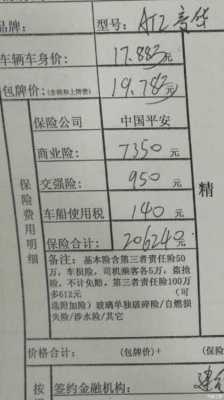 品牌：
型号：ATL豪华
车辆车身价：17.88万元
包牌价：(含税和上牌费) 19.78万元
保险公司 中国平安
商业险：7350元
交强险：950元
车船使用税 140元
保险合计：206240元
保险费用明细
备注：基本险含第三者责任险50
万、车损险，司机乘客各5万；盗抢
险，不计免赔，第三者责任险100万
多612元 （可
选附加险）玻璃单独破碎险/自燃损
失险/涉水险/其它
精
价格合计： (包牌价)+ (保险
按
签约金融机构：